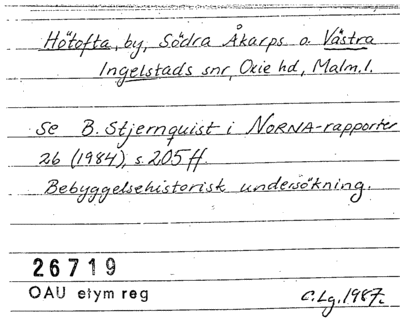 Hötofta, by, Södra Åkarps o. Västra
Ingelstads snr, Oxie hd, Malm. l.
Se B. Stjernquist i NORNA-rapporter
26 (1984), s. 205 ff.
Bebyggelsehistorisk undersökning.
26719
OAU etym reg
C. Lg. 1987.